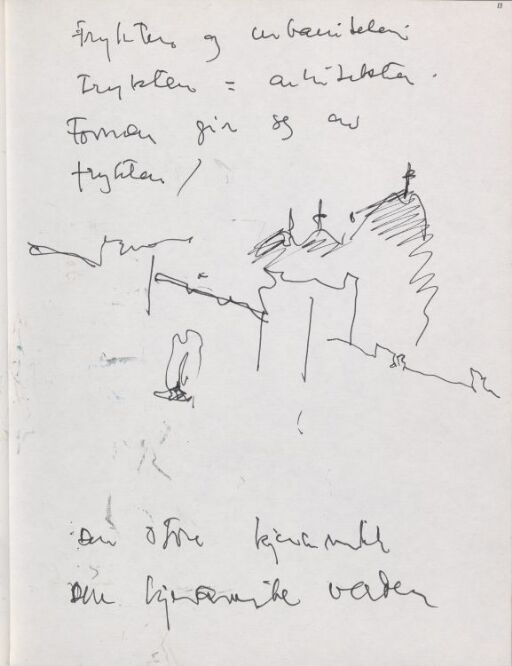 Frykten og urbaniteten
Frykten = arkitekten.
Formen gir seg av
frykten /
den store kjeramikk
den kjeramiske verden